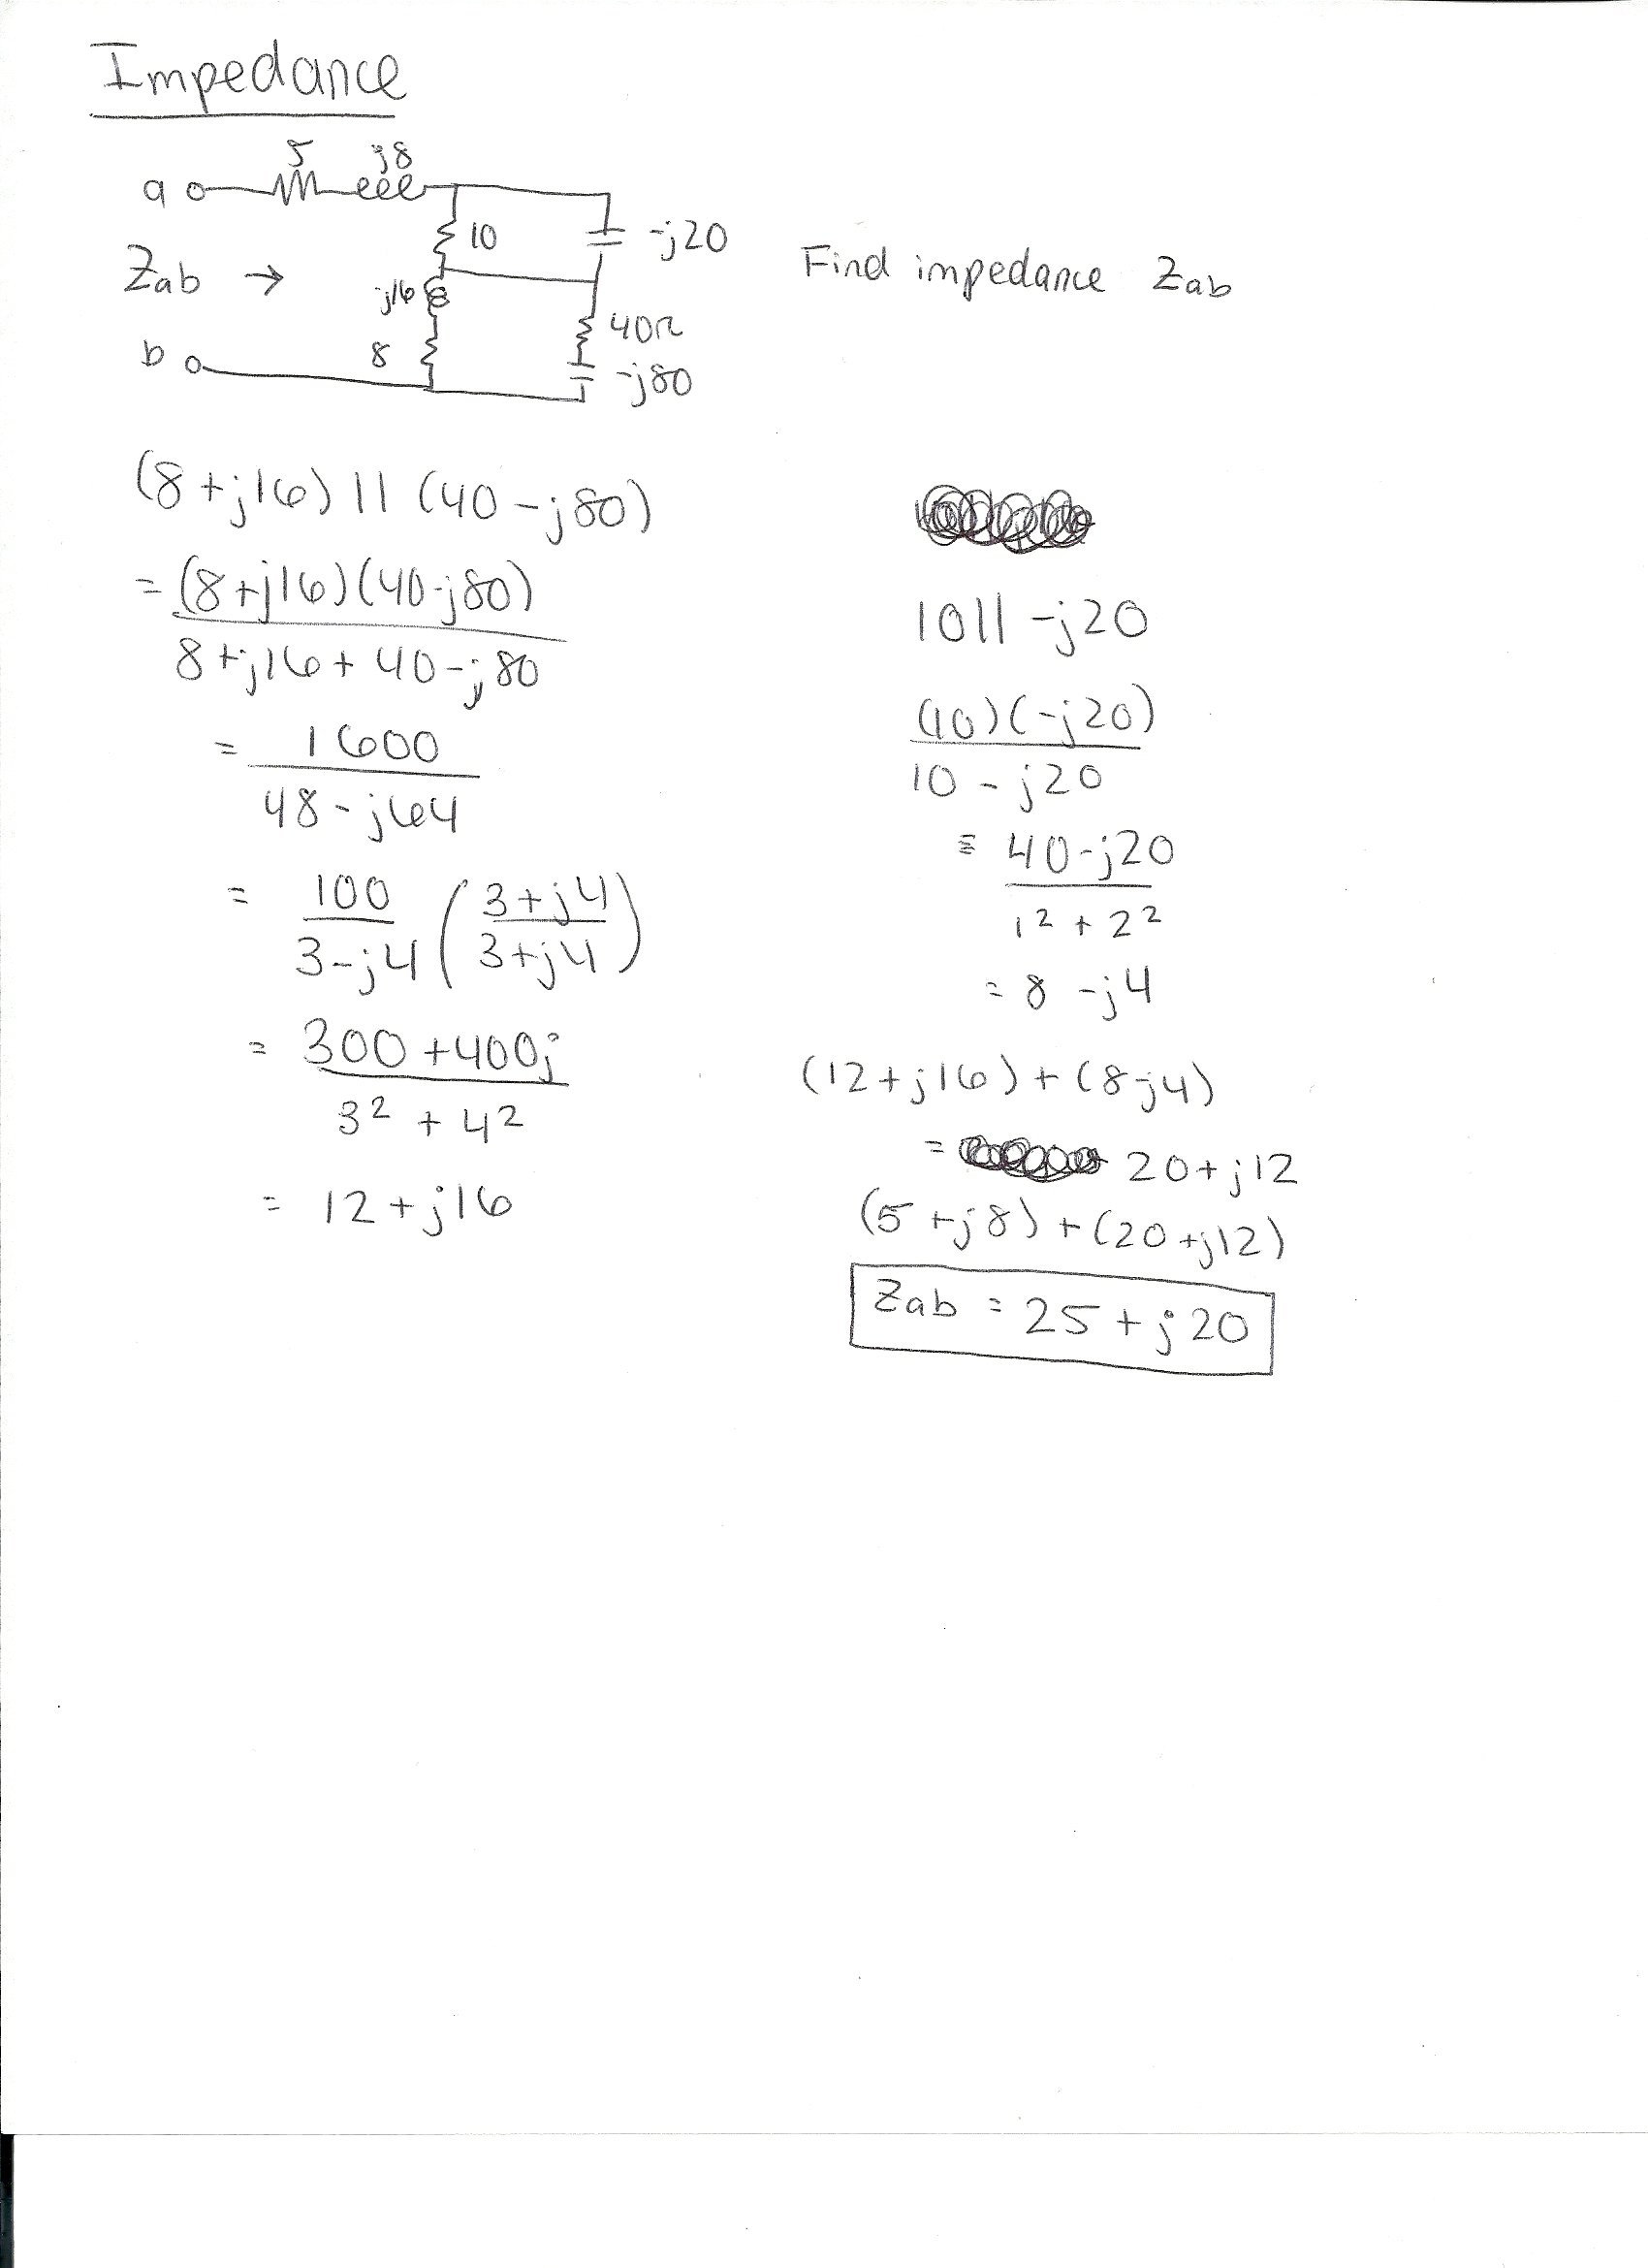 Impedance
5 j8
a
10 -j20
Zab → j16 Find impedance Zab
40Ω
b 8 -j80
(8+j16) || (40-j80)
= (8+j16)(40-j80)
8+j16+40-j80
= 1600
48-j64
= 100 ( 3+j4 )
3-j4 3+j4
= 300+400j
3² + 4²
= 12+j16
10||-j20
(10)(-j20)
10-j20
= 40-j20
1² + 2²
= 8-j4
(12+j16)+(8-j4)
= 20+j12
(5+j8)+(20+j12)
Zab = 25+j20